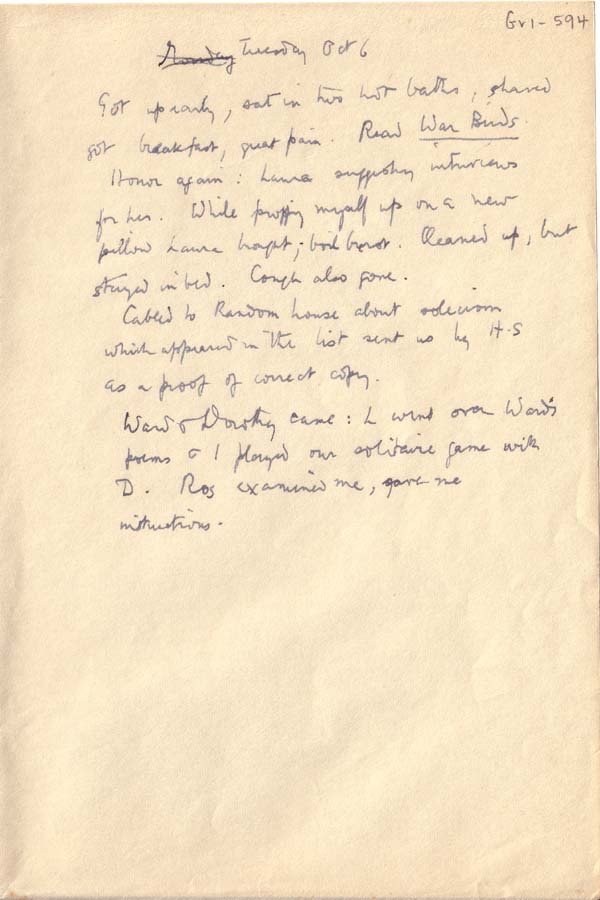 Gv1-594
Monday Tuesday Oct 6
Got up early, sat in two hot baths, shaved
got breakfast, great pain. Read War Birds.
Honor again: Laura suggesting interviews
for her. While propping myself up on a new
pillow Laura bought, boil burst. Cleaned up, but
stayed in bed. Cough also gone.
Cabled to Random House about solecism
which appeared in the list sent us by H-S
as a proof of correct copy.
Ward & Dorothy came: L went over Ward's
poems & I played our solitaire game with
D. Ros examined me, gave me
instructions.